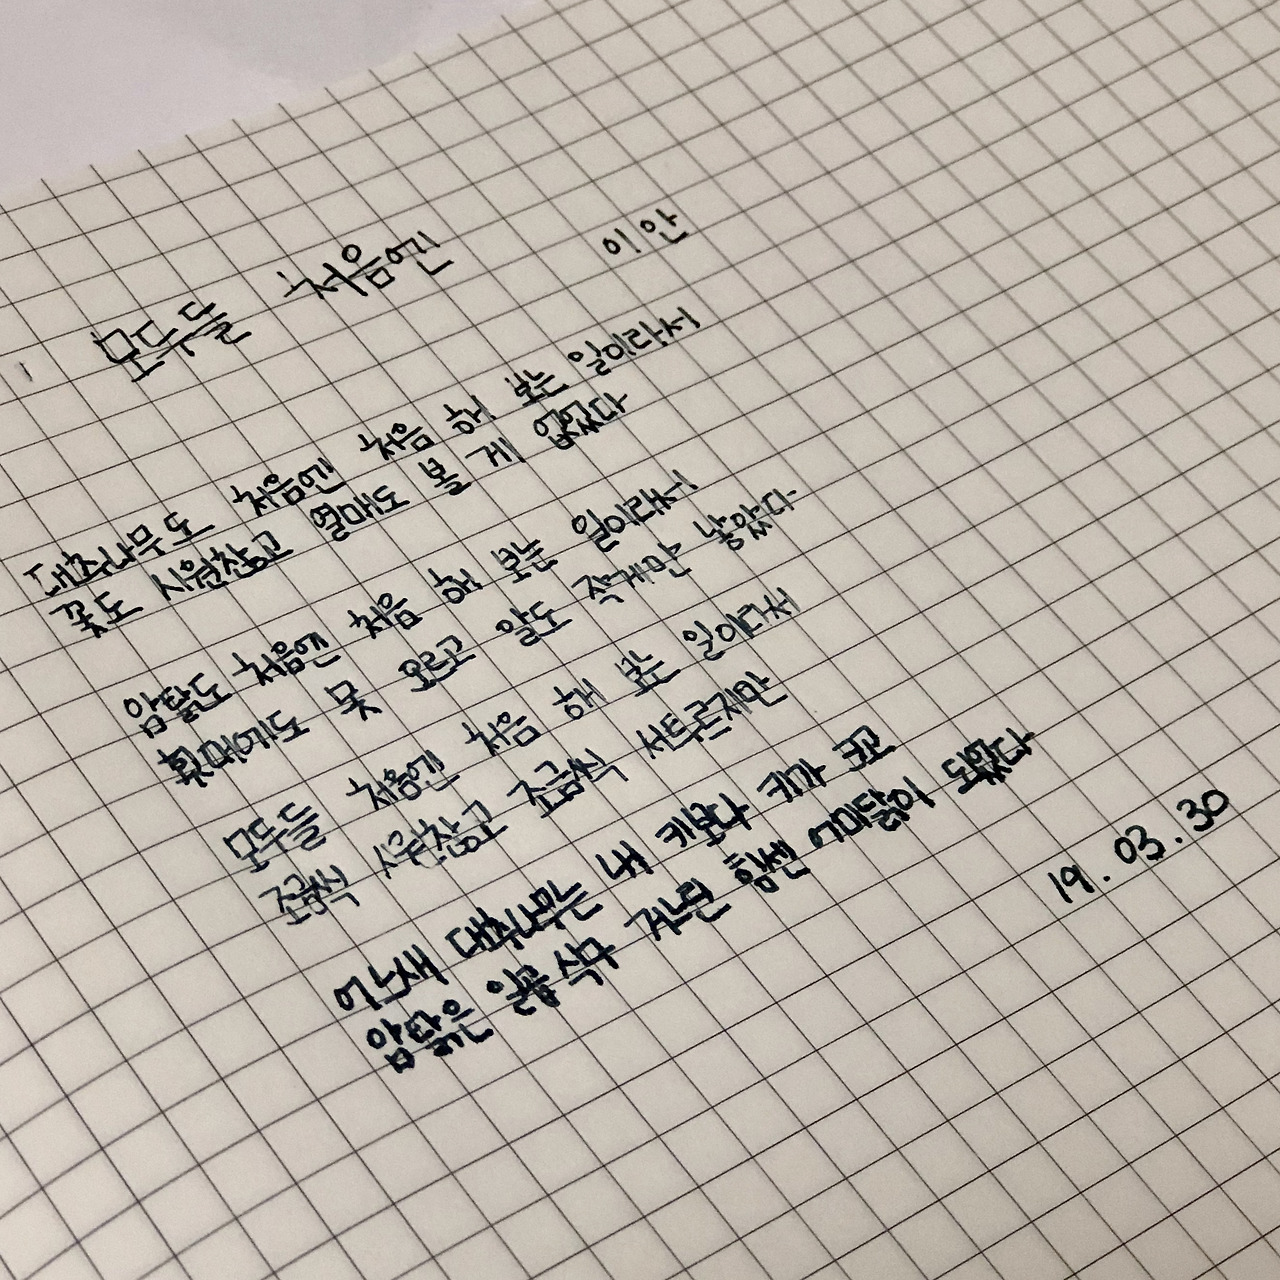 모두들 처음엔
이안
대추나무도 처음엔 처음 해 보는 일이라서
꽃도 시원찮고 열매도 볼 게 없었다
암탉도 처음엔 처음 해 보는 일이라서
횃대에도 못 오르고 알도 작게만 낳았다
모두들 처음엔 처음 해 보는 일이라서
조금씩 시원찮고 조금씩 서투르지만
어느새 대추나무는 내 키보다 키가 크고
암탉은 일곱 식구 거느린 힘센 어미닭이 되었다
19.03.30